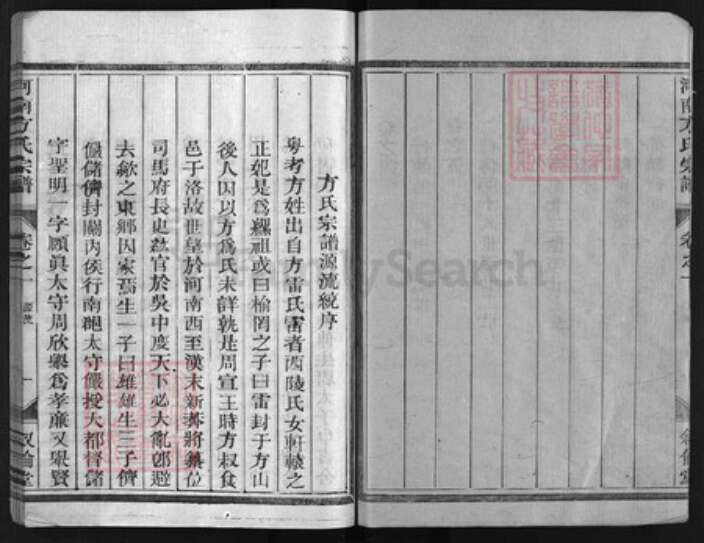 河南方氏宗譜
卷之一
敘倫堂
方氏宗譜源流統序
粤考方姓出自方雷氏雷者西陵氏女軒轅之
正妃是為嫘祖或曰榆罔之子曰雷封于方山
後人因以方為氏未詳孰是周宣王時方叔食
邑于洛故世望於河南西至漢末新莽將篡位
司馬府長史紘官於吳中度天下必大亂卽避
去歙之東鄉因家焉生一子曰雄雄生三子儕
儼儲儕封關內侯行南郡太守儼授大都督儲
字聖明一字頤真太守周歆舉為孝廉又舉賢
河南方氏宗譜
卷之一
源流
一
敘倫堂
FamilySearch